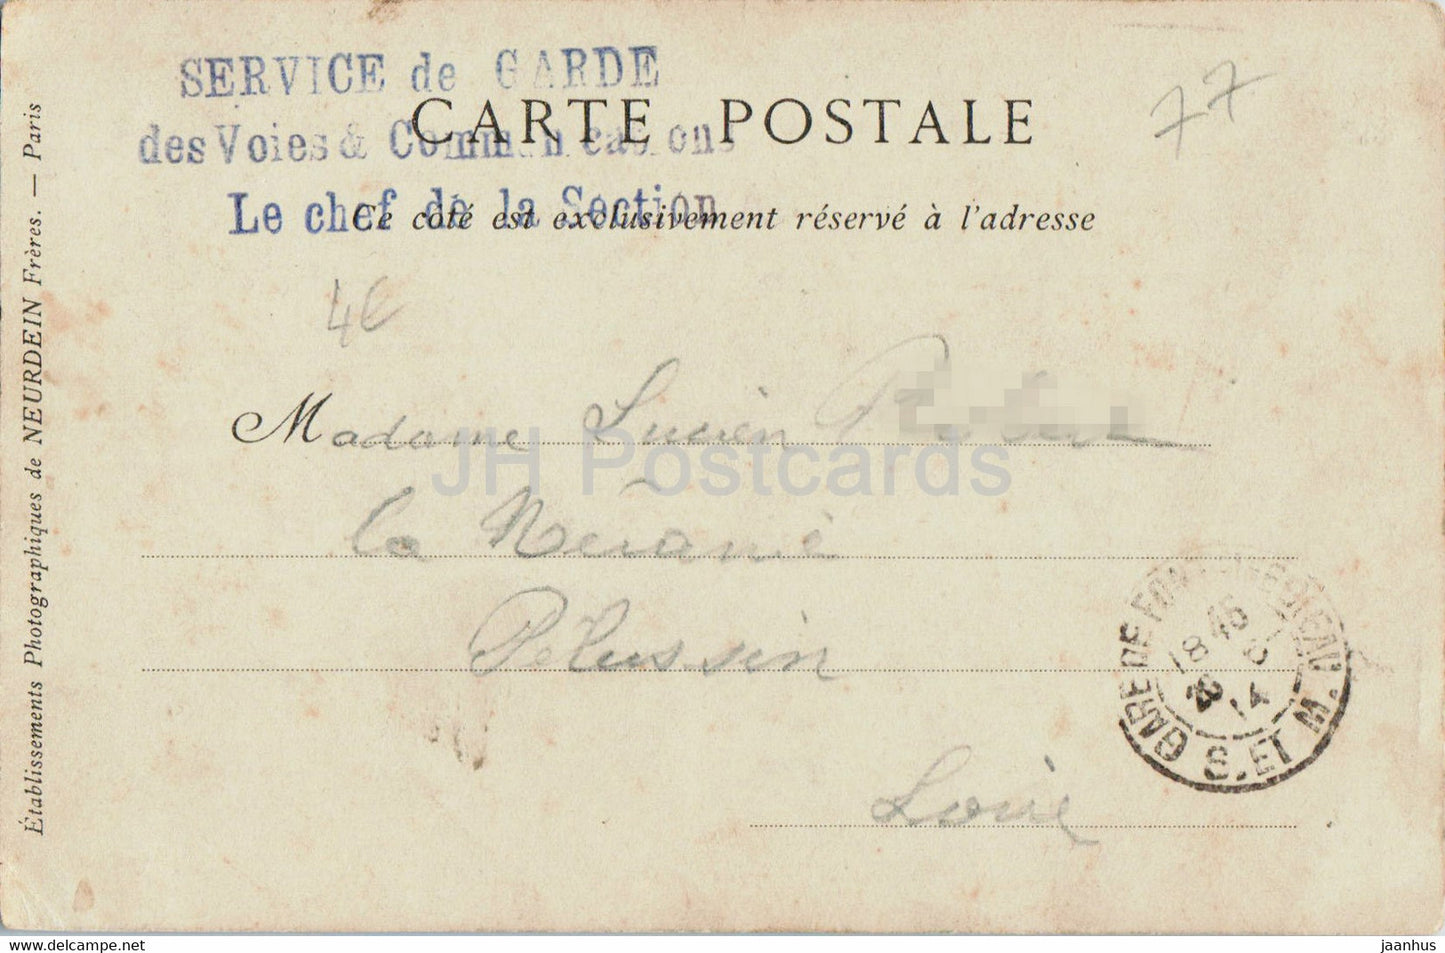 SERVICE de GARDE
des Voies & Communications
Le chef de la Section
CARTE POSTALE
Ce côté est exclusivement réservé à l'adresse
77
4€
Madame Lucien
la
Pélussin
Loire
GARE DE FONTAINEBLEAU
18 45
S. ET M.
Établissements Photographiques de NEURDEIN Frères. — Paris
JH Postcards
jaanhus - https://www.delcampe.net
jaanhus